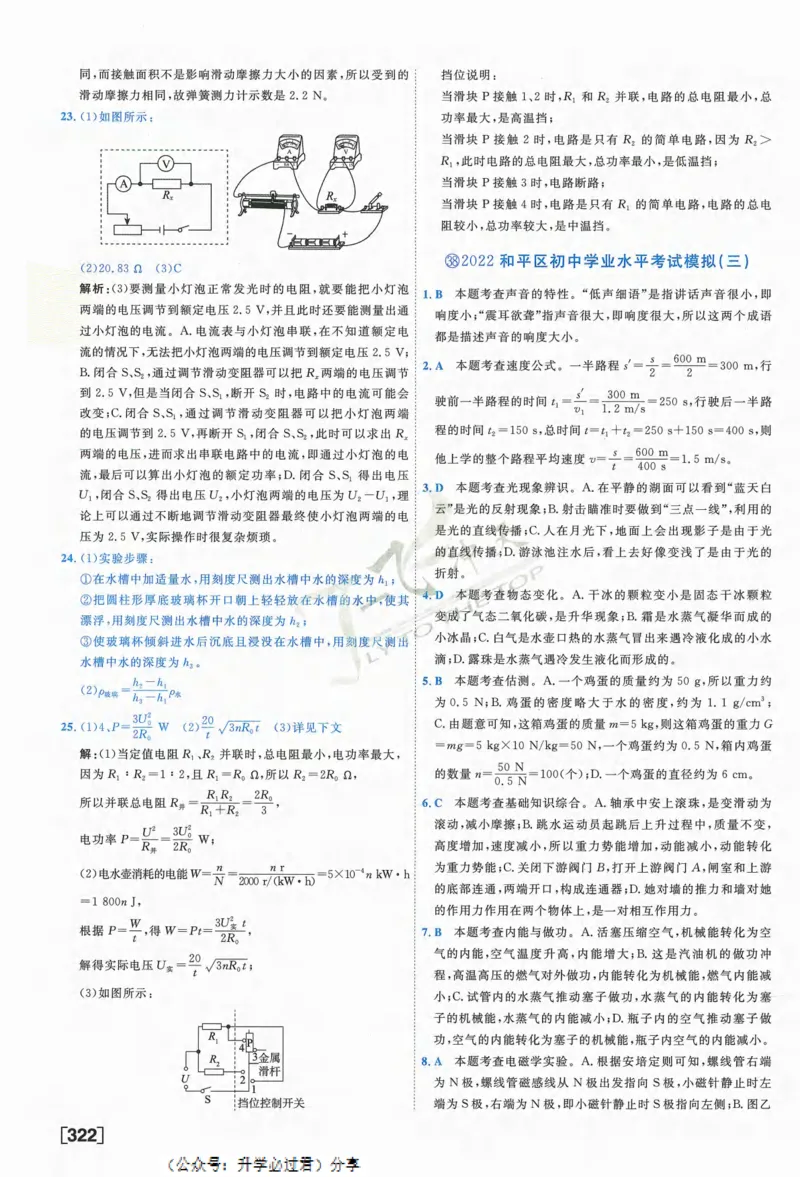 同,而接触面积不是影响滑动摩擦力大小的因素,所以受到的
滑动摩擦力相同,故弹簧测力计示数是 2.2 N。
23. (1)如图所示:
V
A
Rₓ
A
V
Rₓ
− +
(2)20.83 Ω (3)C
解析:(3)要测量小灯泡正常发光时的电阻,就要能把小灯泡
两端的电压调节到额定电压 2.5 V,并且此时还要能测量出通
过小灯泡的电流。A. 电流表与小灯泡串联,在不知道额定电
流的情况下,无法把小灯泡两端的电压调节到额定电压 2.5 V;
B. 闭合 S、S₂,通过调节滑动变阻器可以把 Rₓ 两端的电压调节
到 2.5 V,但是当闭合 S、S₁,断开 S₂ 时,电路中的电流可能会
改变;C. 闭合 S、S₁,通过调节滑动变阻器可以把小灯泡两端
的电压调节到 2.5 V,再断开 S₁,闭合 S、S₂,此时可以求出 Rₓ
两端的电压,进而求出串联电路中的电流,即通过小灯泡的电
流,最后可以算出小灯泡的额定功率;D. 闭合 S、S₁ 得出电压
U₁,闭合 S、S₂ 得出电压 U₂,小灯泡两端的电压为 U₂−U₁,理
论上可以通过不断地调节滑动变阻器最终使小灯泡两端的电
压为 2.5 V,实际操作时很复杂烦琐。
24. (1)实验步骤:
①在水槽中加适量水,用刻度尺测出水槽中水的深度为 h₁;
②把圆柱形厚底玻璃杯开口朝上轻轻放在水槽的水中,使其
漂浮,用刻度尺测出水槽中水的深度为 h₂;
③使玻璃杯倾斜进水后沉底且浸没在水槽中,用刻度尺测出
水槽中水的深度为 h₃。
(2)ρ玻璃=(h₂−h₁)/(h₃−h₁)ρ水
25. (1)4、P=3U₀²/2R₀ W (2)20/t √3nR₀t (3)详见下文
解:(1)当定值电阻 R₁、R₂ 并联时,总电阻最小,电功率最大,
因为 R₁∶R₂=1∶2,且 R₁=R₀ Ω,所以 R₂=2R₀ Ω,
所以并联总电阻 R并=R₁R₂/(R₁+R₂)=2R₀/3,
电功率 P=U²/R并=3U₀²/2R₀ W;
(2)电水壶消耗的电能 W=n/N=n r/2000 r/(kW·h)=5×10⁻⁴n kW·h
=1 800n J,
根据 P=W/t,得 W=Pt=3U实²t/2R₀,
解得实际电压 U实=20/t √3nR₀t;
(3)如图所示:
R₁
4
P
3
金属
滑杆
R₂
2
U
1
S
挡位控制开关
挡位说明:
当滑块 P 接触 1、2 时,R₁ 和 R₂ 并联,电路的总电阻最小,总
功率最大,是高温挡;
当滑块 P 接触 2 时,电路是只有 R₂ 的简单电路,因为 R₂>
R₁,此时电路的总电阻最大,总功率最小,是低温挡;
当滑块 P 接触 3 时,电路断路;
当滑块 P 接触 4 时,电路是只有 R₁ 的简单电路,电路的总电
阻较小,总功率较大,是中温挡。
㊳2022 和平区初中学业水平考试模拟(三)
1. B 本题考查声音的特性。“低声细语”是指讲话声音很小,即
响度小;“震耳欲聋”指声音很大,即响度很大,所以这两个成语
都是描述声音的响度大小。
2. A 本题考查速度公式。一半路程 s′=s/2=600 m/2=300 m,行
驶前一半路程的时间 t₁=s′/v₁=300 m/1.2 m/s=250 s,行驶后一半路
程的时间 t₂=150 s,总时间 t=t₁+t₂=250 s+150 s=400 s,则
他上学的整个路程平均速度 v=s/t=600 m/400 s=1.5 m/s。
3. D 本题考查光现象辨识。A. 在平静的湖面可以看到“蓝天白
云”是光的反射现象;B. 射击瞄准时要做到“三点一线”,利用的
是光的直线传播;C. 人在月光下,地面上会出现影子是由于光
的直线传播;D. 游泳池注水后,看上去好像变浅了是由于光的
折射。
4. D 本题考查物态变化。A. 干冰的颗粒变小是固态干冰颗粒
变成了气态二氧化碳,是升华现象;B. 霜是水蒸气凝华而成的
小冰晶;C. 白气是水壶口热的水蒸气冒出来遇冷液化成的小水
滴;D. 露珠是水蒸气遇冷发生液化而形成的。
5. B 本题考查估测。A. 一个鸡蛋的质量约为 50 g,所以重力约
为 0.5 N;B. 鸡蛋的密度略大于水的密度,约为 1.1 g/cm³;
C. 由题意可知,这箱鸡蛋的质量 m=5 kg,则这箱鸡蛋的重力 G
=mg=5 kg×10 N/kg=50 N,一个鸡蛋约为 0.5 N,箱内鸡蛋
的数量 n=50 N/0.5 N=100(个);D. 一个鸡蛋的直径约为 6 cm。
6. C 本题考查基础知识综合。A. 轴承中安上滚珠,是变滑动为
滚动,减小摩擦;B. 跳水运动员起跳后上升过程中,质量不变,
高度增加,速度减小,所以重力势能增加,动能减小,动能转化
为重力势能;C. 关闭下游阀门 B,打开上游阀门 A,闸室和上游
的底部连通,两端开口,构成连通器;D. 她对墙的推力和墙对她
的作用力作用在两个物体上,是一对相互作用力。
7. B 本题考查内能与做功。A. 活塞压缩空气,机械能转化为空
气的内能,空气温度升高,内能增大;B. 这是汽油机的做功冲
程,高温高压的燃气对外做功,内能转化为机械能,燃气内能减
小;C. 试管内的水蒸气推动塞子做功,水蒸气的内能转化为塞
子的机械能,水蒸气的内能减小;D. 瓶子内的空气推动塞子做
功,空气的内能转化为塞子的机械能,瓶子内空气的内能减小。
8. A 本题考查电磁学实验。A. 根据安培定则可知,螺线管右端
为 N 极,螺线管磁感线从 N 极出发指向 S 极,小磁针静止时左
端为 S 极,右端为 N 极,即小磁针静止时 S 极指向左侧;B. 图乙
[322]
(公众号:升学必过君)分享